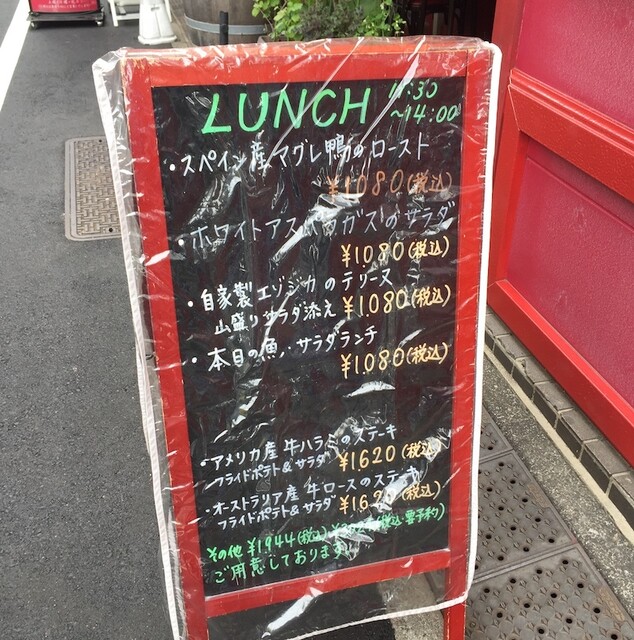 LUNCH 11:30
~14:00
・スペイン産マグレ鴨のロースト
¥1080(税込)
・ホワイトアスパラガスのサラダ
¥1080(税込)
・自家製エゾジカのテリーヌ
山盛りサラダ添え ¥1.080(税込)
・本日の魚、サラダランチ
¥1.080(税込)
・アメリカ産 牛ハラミのステーキ
フライドポテト&サラダ ¥1620(税込)
・オーストラリア産 牛ロースのステーキ
フライドポテト&サラダ ¥1620(税込)
その他 ¥1944(税込) (税込・要予約)
ご用意しております